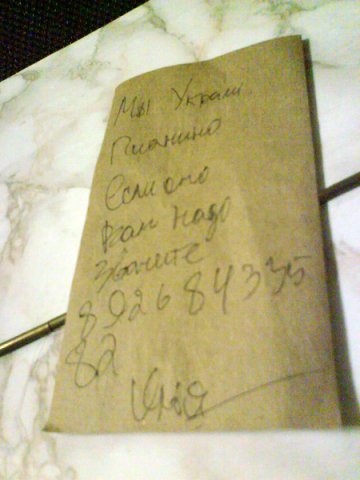 Мы Украли
Пианино
Если оно
Вам надо
Звоните
8926 84335
82
Илья